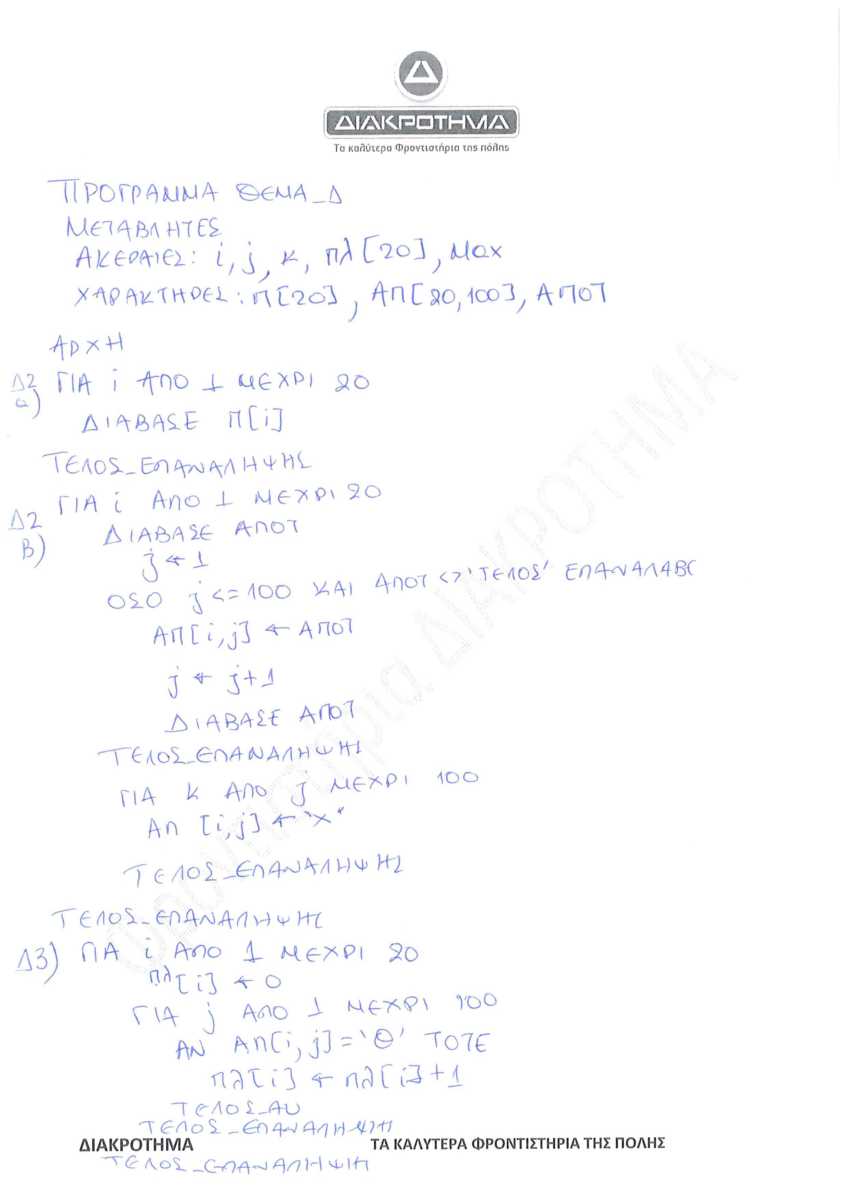 Δ
ΔΙΑΚΡΟΤΗΜΑ
Τα καλύτερα Φροντιστήρια της πόλης
ΠΡΟΓΡΑΜΜΑ ΘΕΜΑ_Δ
ΜΕΤΑΒΛΗΤΕΣ
ΑΚΕΡΑΙΕΣ: i, j, κ, πλ[20], Max
ΧΑΡΑΚΤΗΡΕΣ: Π[20], ΑΠ[20,100], ΑΠΟΤ
ΑΡΧΗ
Δ2 α) ΓΙΑ i ΑΠΟ 1 ΜΕΧΡΙ 20
ΔΙΑΒΑΣΕ Π[i]
ΤΕΛΟΣ_ΕΠΑΝΑΛΗΨΗΣ
Δ2 Β) ΓΙΑ i ΑΠΟ 1 ΜΕΧΡΙ 20
ΔΙΑΒΑΣΕ ΑΠΟΤ
j ← 1
ΟΣΟ j <= 100 ΚΑΙ ΑΠΟΤ <> 'ΤΕΛΟΣ' ΕΠΑΝΑΛΑΒΕ
ΑΠ[i,j] ← ΑΠΟΤ
j ← j+1
ΔΙΑΒΑΣΕ ΑΠΟΤ
ΤΕΛΟΣ_ΕΠΑΝΑΛΗΨΗΣ
ΓΙΑ κ ΑΠΟ j ΜΕΧΡΙ 100
ΑΠ [i,j] ← 'Χ'
ΤΕΛΟΣ_ΕΠΑΝΑΛΗΨΗΣ
ΤΕΛΟΣ_ΕΠΑΝΑΛΗΨΗΣ
Δ3) ΓΙΑ i ΑΠΟ 1 ΜΕΧΡΙ 20
πλ[i] ← 0
ΓΙΑ j ΑΠΟ 1 ΜΕΧΡΙ 100
ΑΝ ΑΠ[i,j] = 'Θ' ΤΟΤΕ
πλ[i] ← πλ[i]+1
ΤΕΛΟΣ_ΑΝ
ΤΕΛΟΣ_ΕΠΑΝΑΛΗΨΗΣ
ΔΙΑΚΡΟΤΗΜΑ ΤΑ ΚΑΛΥΤΕΡΑ ΦΡΟΝΤΙΣΤΗΡΙΑ ΤΗΣ ΠΟΛΗΣ
ΤΕΛΟΣ_ΕΠΑΝΑΛΗΨΗΣ
Φροντιστήρια ΔΙΑΚΡΟΤΗΜΑ